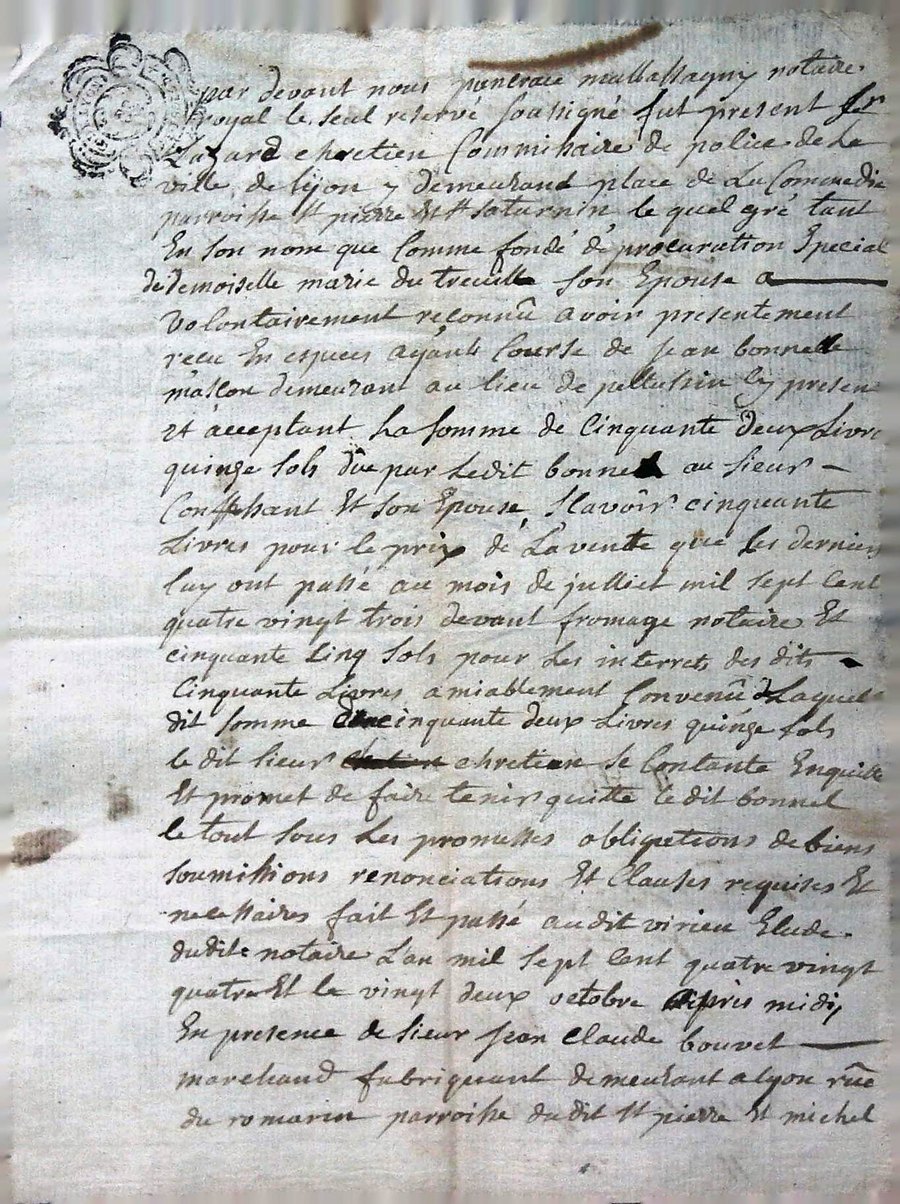 par devant nous pancrace mallassagny notaire
royal le seul reservé soussigné fut present sr
Lazard chretien Commissaire de police de La
ville de lyon y demeurand place de La Commedie
parroisse st pierre Et st saturnin le quel gré tant
En son nom que Comme fondé de procuration Special
de demoiselle marie du treuille son Epouse a
volontairement reconnû avoir presentement
recu En especes ayants Course de jean bonnel
masson demeurant au lieu de pellussin Cy presen
et acceptant La somme de Cinquante deux Livre
quinze sols dûe par Ledit bonnel au sieur
Conffessant Et son Epouse, scavoir cinquante
Livres pour le prix de La vente que les derniers
luy ont passé au mois de julliet mil sept Cent
quatre vingt trois devant fromage notaire Et
cinquante Cinq sols pour Les interrets des dits
Cinquante Livres amiablement Convenû Laquel
dit somme de cinquante deux Livres quinze sols
le dit sieur chretien se Contante En quitte
Et promet de faire tenir quitte le dit bonnel
le tout sous Les promesses obligetions de biens
soumissions renonciations Et Clauses requises Et
necessaires fait Et passé audit virieu Etude
dudit notaire L'an mil sept Cent quatre vingt
quatre Et le vingt deux octobre après midy
En presence de sieur jean Claude bouvet
marchand fabriquant demeurant a lyon rüe
du romarin parroisse dudit st pierre Et michel